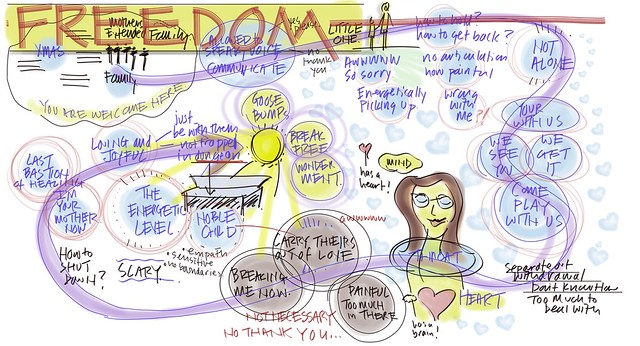 FREEDOM
Mothers
Extended Family
Xmas
Family
YOU ARE WELCOME HERE
ALLOWED TO
SPEAK VOICE
COMMUNICATE
yes please
no
thank
you
LITTLE
ONE.
AWWWWW
so sorry
how to hold?
how to get back?
no articulation
how painful
Energetically
Picking up
wrong
with
me?!
NOT
ALONE
YOUR
WITH US
WE
SEE
YOU
WE
GET
IT
COME
PLAY
WITH US
GOOSE
BUMPS
BREAK
FREE
WONDER
MENT.
LOVING and
JOYFUL
just
be with them
not trapped
LAST
BASTION
OF HEALING
I'M
YOUR
MOTHER
NOW
THE
ENERGETIC
LEVEL
NOBLE
CHILD
• empath
• sensitive
• no boundaries
HOW TO
SHUT
DOWN?
SCARY
awwwww
CARRY THEIRS
OUT OF LOVE
BREAKING
ME NOW.
PAINFUL
TOO MUCH
IN THERE
NOT NECESSARY
NO THANK YOU...
has a
heart!
MIND
THROAT
HEART
has a
brain!
separate out
withdrawal
TOO MUCH to
DEAL WITH